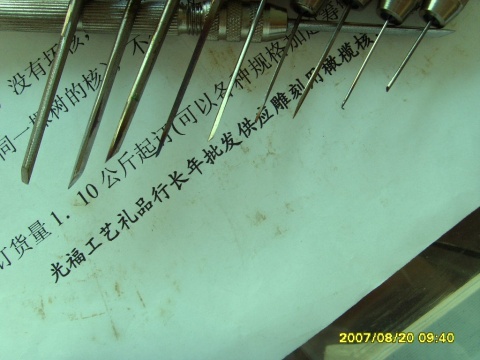 没有坏核,
同一棵树的核),不
订货量1.10公斤起订(可以各种规格加起
光福工艺礼品行长年批发供应雕刻用橄榄核
2007/08/20 09:40